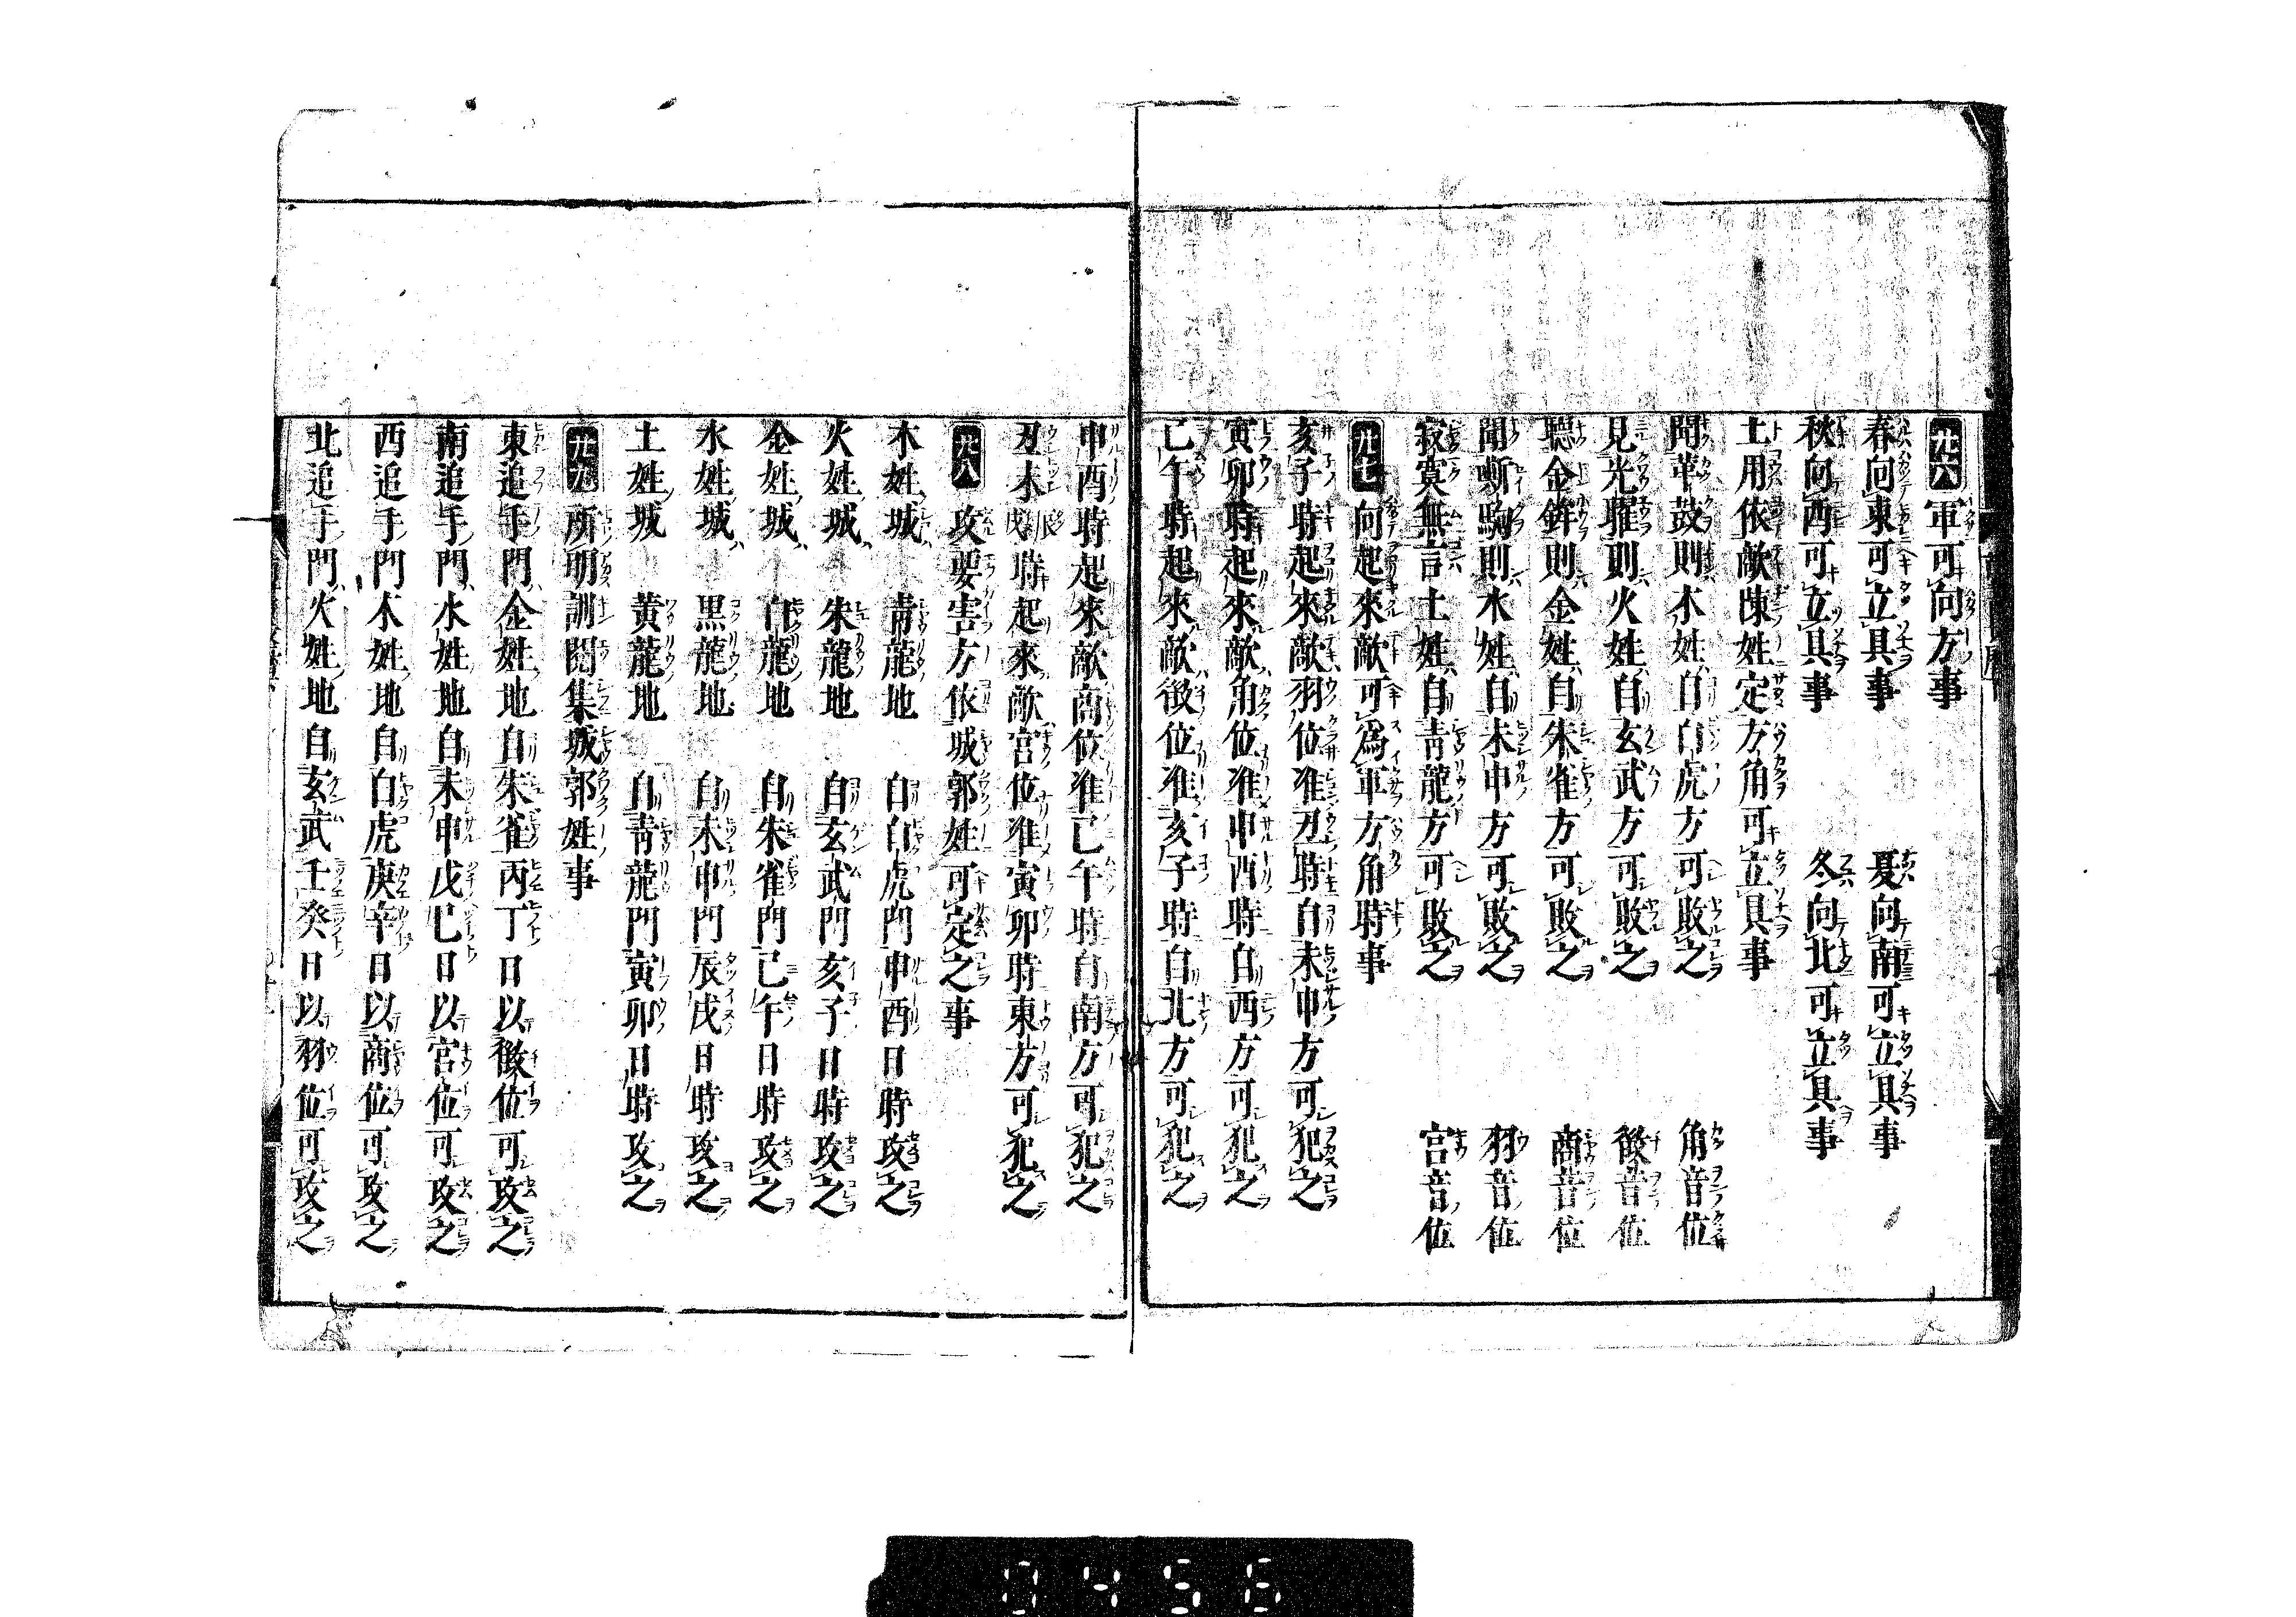 九六 軍可向方事
春向東可立具事 夏向南可立具事
秋向西可立具事 冬向北可立具事
土用依敵陳姓定方角可立具事
聞革鼓則木姓自白虎方可敗之 角音位
見光耀則火姓自玄武方可敗之 徴音位
聴金鉾則金姓自朱雀方可敗之 商音位
聞嘶駒則水姓自未申方可敗之 羽音位
寂寞無言土姓自青龍方可敗之 宮音位
九七 向起來敵可爲軍方角時事
亥子時起來敵羽位准丑時自未申方可犯之
寅卯時起來敵角位准申酉時自西方可犯之
巳午時起來敵徴位准亥子時自北方可犯之
申酉時起來敵商位准巳午時自南方可犯之
丑未辰戌時起來敵宮位准寅卯時東方可犯之
九八 攻要害方依城郭姓可定之事
木姓城 青龍地 自白虎門申酉日時攻之
火姓城 朱龍地 自玄武門亥子日時攻之
金姓城 白龍地 自朱雀門巳午日時攻之
水姓城 黒龍地 自未申門辰戌日時攻之
土姓城 黄龍地 自青龍門寅卯日時攻之
九九 所明訓閲集城郭姓事
東追手門金姓地自朱雀丙丁日以徴位可攻之
南追手門水姓地自未申戊己日以宮位可攻之
西追手門木姓地自白虎庚辛日以商位可攻之
北追手門火姓地自玄武壬癸日以羽位可攻之
0456